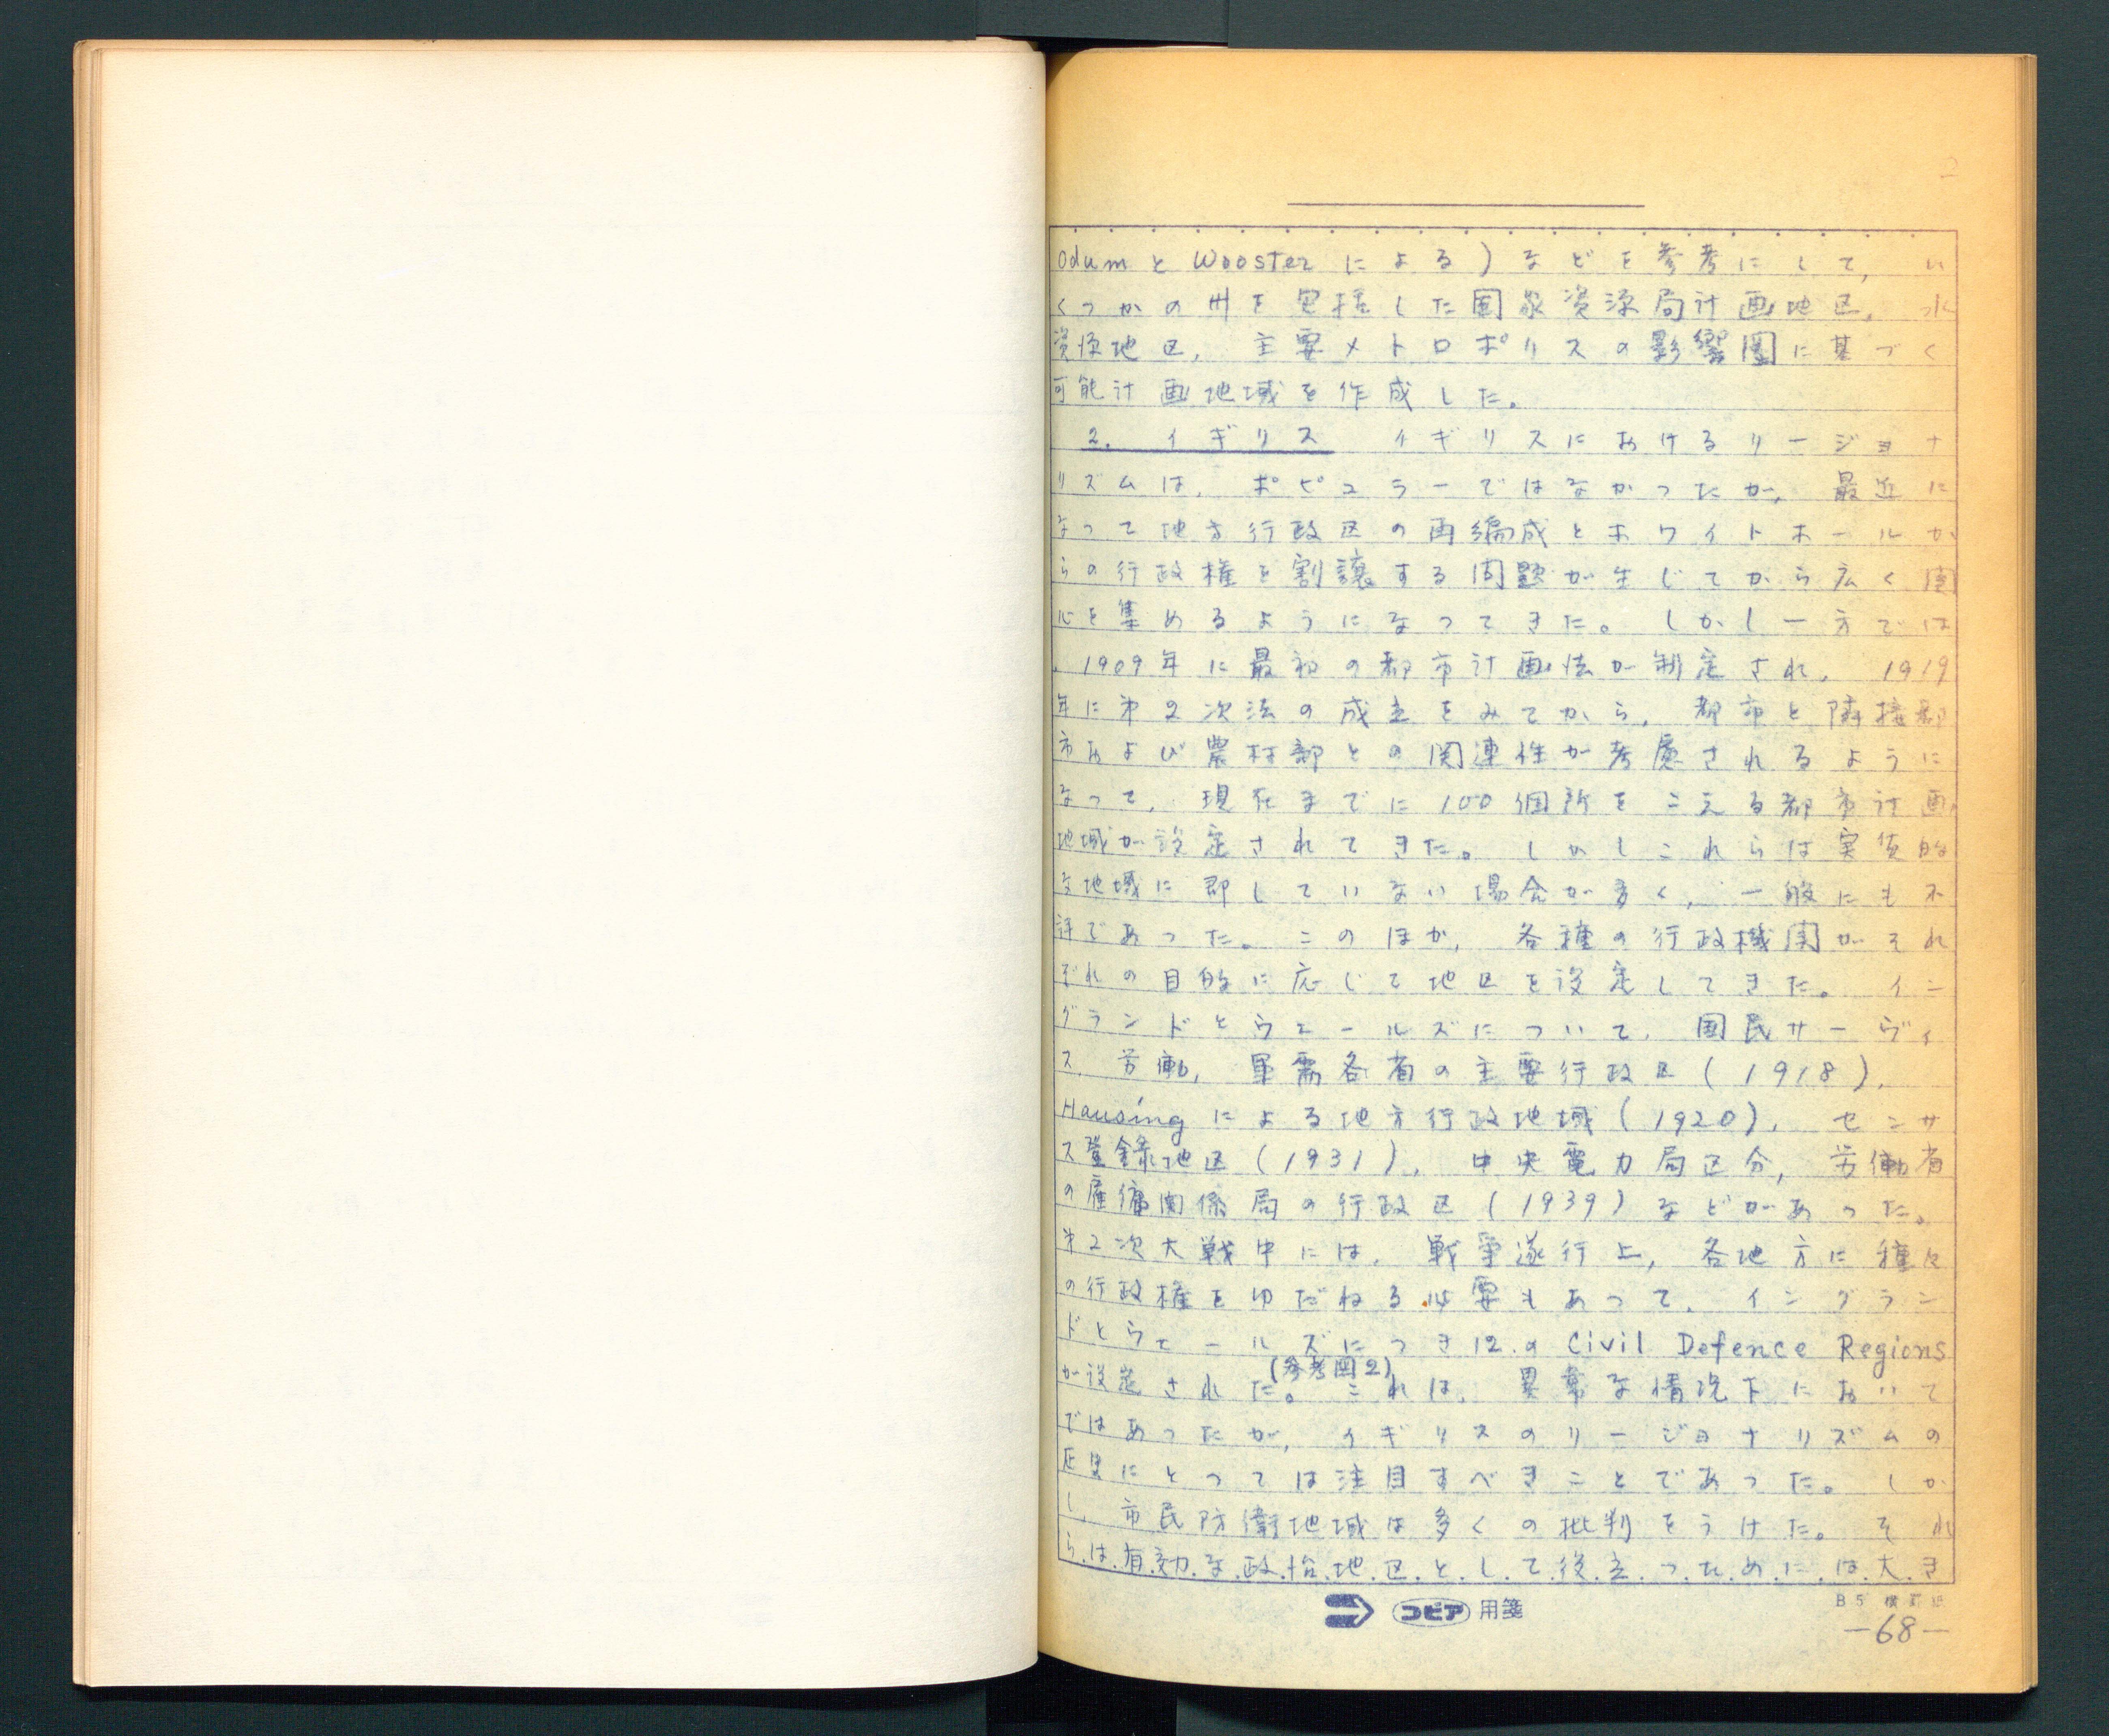 Odum と Wooster による) などを参考にして, い
くつかの州を包括した国家資源局計画地区, 水
資源地区, 主要メトロポリスの影響圏に基づく
可能計画地域を作成した。
2. イギリス イギリスにおけるリージョナ
リズムは, ポピュラーではなかったが, 最近に
なって地方行政区の再編成とホワイトホールか
らの行政権を割譲する問題が生じてから広く関
心を集めるようになってきた。しかし一方では
, 1909年に最初の都市計画法が制定され, 1919
年に第2次法の成立をみてから, 都市と隣接都
市および農村部との関連性が考慮されるように
なって, 現在までに100個所をこえる都市計画
地域が設定されてきた。しかしこれらは実質的
な地域に即していない場合が多く, 一般にも不
評であった。このほか, 各種の行政機関がそれ
ぞれの目的に応じて地区を設定してきた。イン
グランドとウェールズについて, 国民サーヴィ
ス, 労働, 軍需各省の主要行政区 (1918),
Hausing による地方行政地域 (1920), センサ
ス登録地区 (1931), 中央電力局区分, 労働省
の雇傭関係局の行政区 (1939) などがあった。
第2次大戦中には, 戦争遂行上, 各地方に種々
の行政権をゆだねる必要もあって, イングラン
ドとウェールズにつき12の Civil Defence Regions
が設定された。(参考図2) これは, 異常な情況下において
ではあったが, イギリスのリージョナリズムの
歴史にとっては注目すべきことであった。しか
し, 市民防衛地域は多くの批判をうけた。それ
らは有効な政治地区として役立つためには大き
コピア 用箋
B5 横罫
—68—